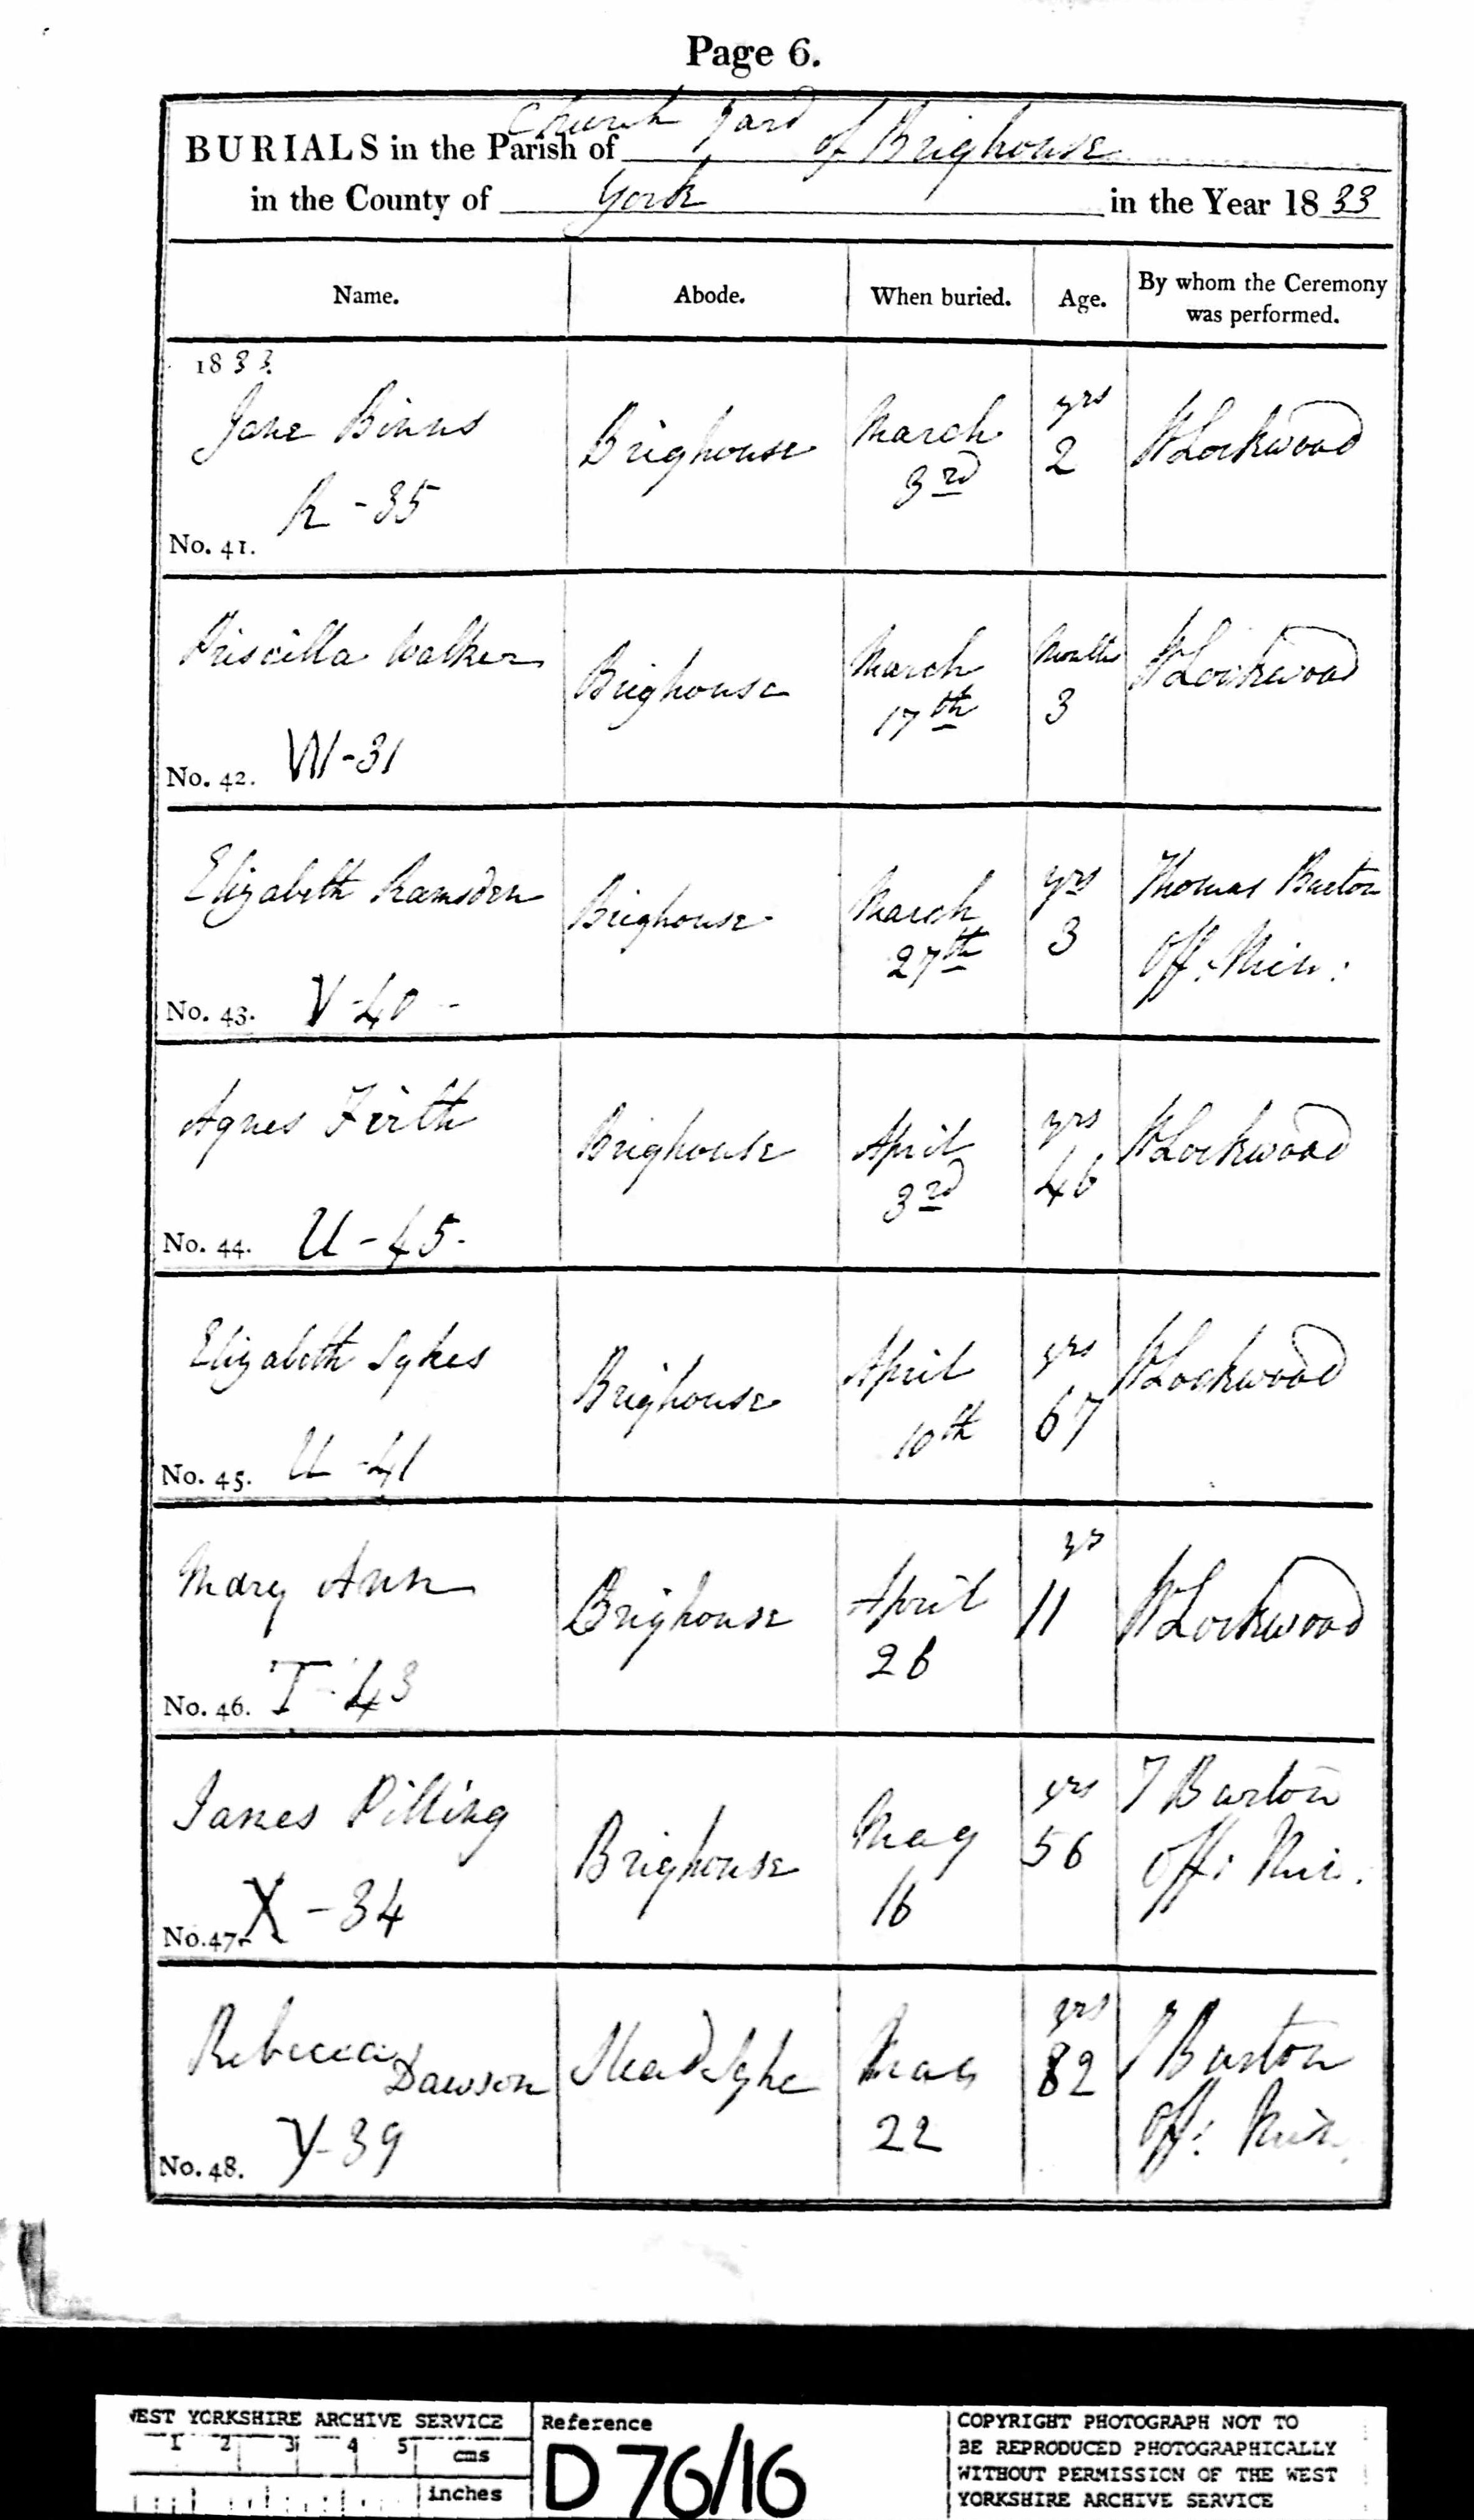 Page 6.
Church Yard
BURIALS in the Parish of of Brighouse
in the County of York in the Year 1833
Name. Abode. When buried. Age. By whom the Ceremony was performed.
1833.
Jane Binns Brighouse March 3rd yrs 2 W Lockwood
R - 35
No. 41.
Priscilla Walker Brighouse March 17th Months 3 W Lockwood
No. 42. W - 31
Elizabeth Ramsden Brighouse March 27th yrs 3 Thomas Burton Off: Min:
No. 43. V - 40 -
Agnes Firth Brighouse April 3rd yrs 46 W Lockwood
No. 44. U - 45.
Elizabeth Sykes Brighouse April 10th yrs 67 W Lockwood
No. 45. U - 41
Mary Ann Brighouse April 26 yrs 11 W Lockwood
No. 46. T - 43
James Pilling Brighouse May 16 yrs 56 T Burton Off: Min.
No. 47. X - 34
Rebecca Dawson Slead Syke May 22 yrs 82 T Burton Off: Min.
No. 48. Y - 39
WEST YORKSHIRE ARCHIVE SERVICE
1 2 3 4 5 cms
inches
Reference
D76/16
COPYRIGHT PHOTOGRAPH NOT TO
BE REPRODUCED PHOTOGRAPHICALLY
WITHOUT PERMISSION OF THE WEST
YORKSHIRE ARCHIVE SERVICE